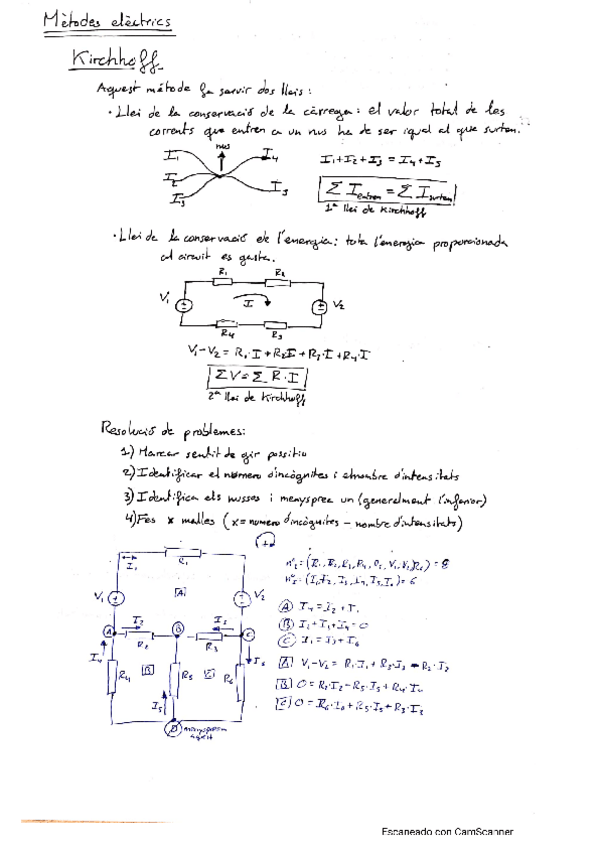 Mètodes elèctrics
Kirchhoff
Aquest métode fa servir dos lleis:
· Llei de la conservació de la càrrega: el valor total de les
corrents que entren a un nus ha de ser igual al que surten.
nus
I1
I4
I2
I3
I1+I2+I3 = I4+I5
Σ I entren = Σ I surten
1ª llei de Kirchhoff
· Llei de la conservació de l'energia: tota l'energia proporcionada
al circuit es gasta.
R1 R2
V1 I V2
R4 R3
V1-V2 = R1·I+R2·I+R3·I+R4·I
ΣV = Σ R·I
2ª llei de Kirchhoff
Resolució de problemes:
1) Marcar sentit de gir possitiu
2) Identificar el número d'incògnites i el nombre d'intensitats
3) Identifica els nusos i menysprea un (generalment l'inferior)
4) Fes x malles (x = numero d'incògnites - nombre d'intensitats)
+
I1 R1
V1 A V2
A I2 B I3 C
R2 R3
I4 I6
R4 B R5 C R6
I5
D
A I4 = I2 +
B
C
A V1-V2 =
B 0 =
C 0 = R6·I6+R5·I5+R3·I3
Escaneado con CamScanner